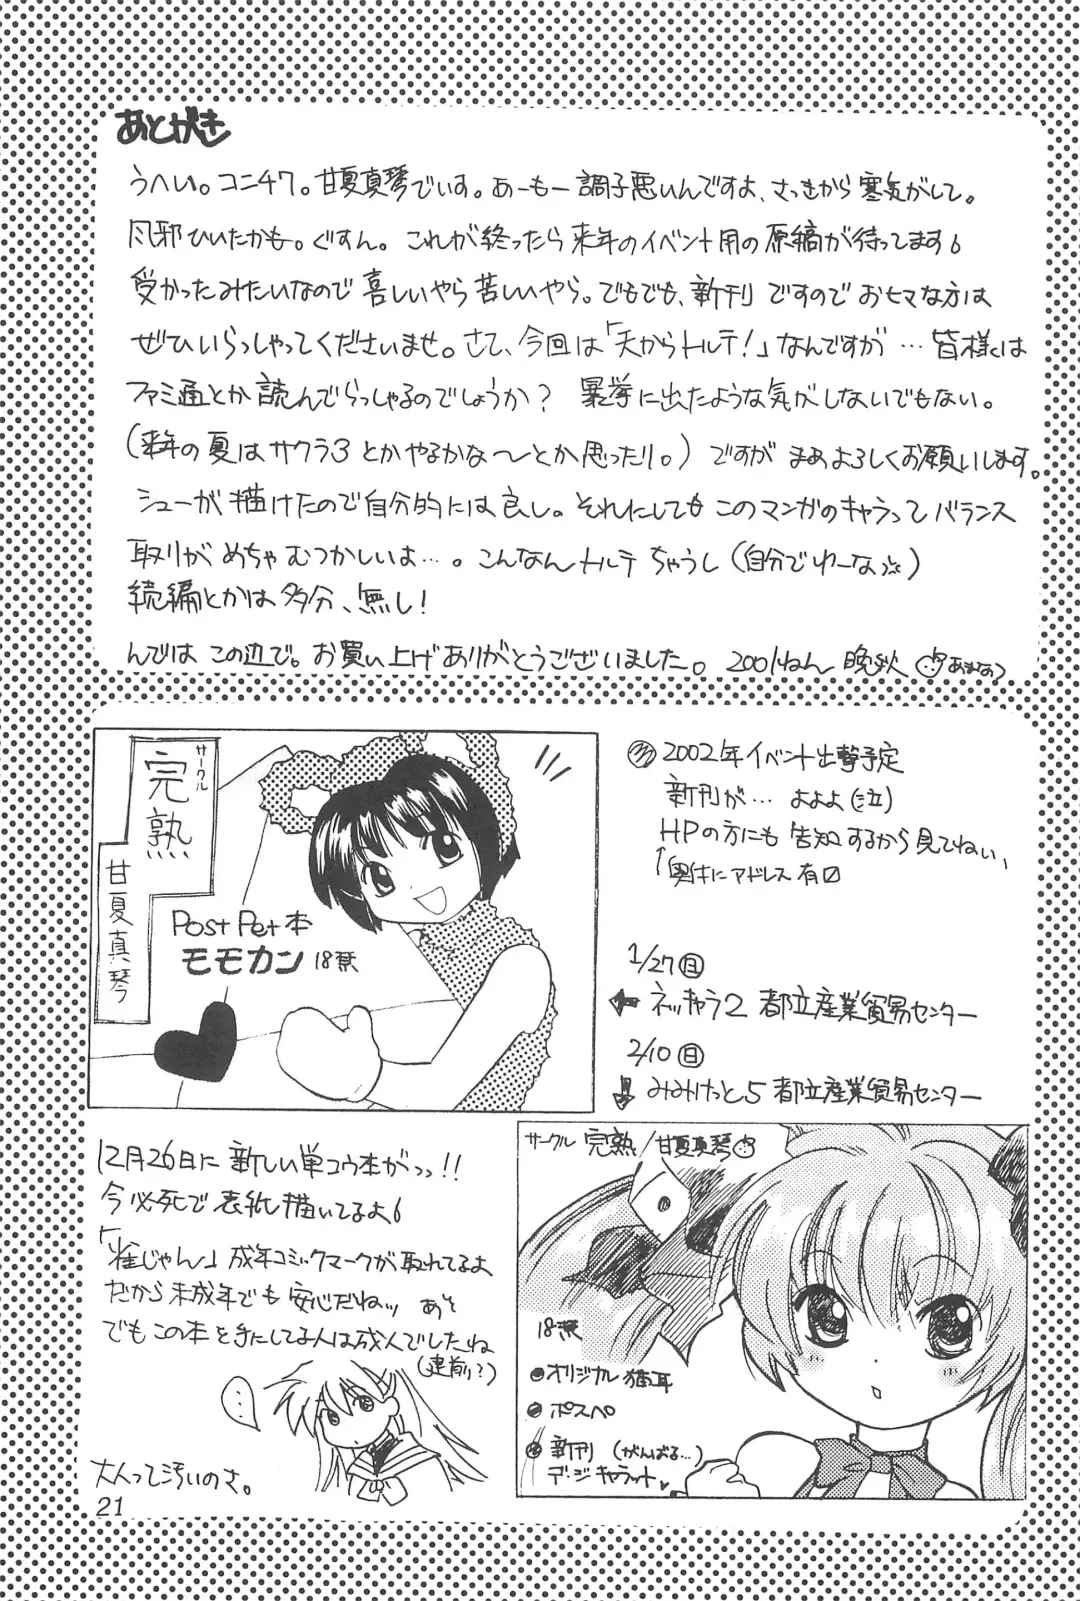 あとがき
うへい。コニ47。甘夏真琴でいす。あーもー調子悪いんですよ、さっきから寒気がして。
風邪ひいたかも。ぐすん。これが終ったら来年のイベント用の原稿が待ってます
受かったみたいなので喜しいやら苦しいやら。でもでも、新刊ですのでおヒマな方は
ぜひいらっしゃってくださいませ。さて、今回は「天からトルテ!」なんですが…皆様は
ファミ通とか読んでらっしゃるのでしょうか? 暴挙に出たような気がしないでもない。
(来年の夏はサクラ3とかやるかな〜とか思ったり。)ですがまぁよろしくお願いします。
シューが描けたので自分的には良し。それにしてもこのマンガのキャラってバランス
取りがめちゃむつかしいよ…。こんなんトルテちゃうし(自分でゆーな)
続編とかは多分、無し!
んではこの辺で。お買い上げありがとうございました。2001ねん 晩秋
サークル
完熟
甘夏真琴
PostPet本
モモカン 18禁
2002年イベント出撃予定
新刊が… よよよ(泣)
HPの方にも告知するから見てねい、
↑奥付にアドレス有
1/27(日)
ネッキャラ2 都立産業貿易センター
2/10(日)
みみけっと5 都立産業貿易センター
12月26日に新しい単コウ本がっっ!!
今必死で表紙描いてるよ
「雀じゃん」成年コミックマークが取れてるよ
だから未成年でも安心だねッ
でもこの本を手にしてる人は成人でしたね
(建前?)
…
大人って汚いのさ。
21
サークル 完熟/甘夏真琴
18禁
●オリジナル猫耳
●ポスペ
●新刊 (がんばる…)
デ・ジキャラット